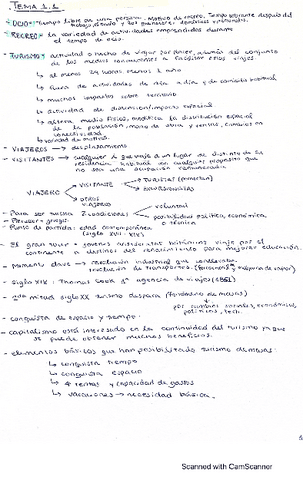 TEMA 1.1
• OCIO → tiempo libre de una persona. Tiempo restante después del
trabajo,
• RECREO → la variedad de actividades emprendidas durante
el tiempo de ocio.
• TURISMO → actividad o hecho de viajar por placer, además del conjunto
de los medios conducentes a facilitar estos viajes.
↳ al menos 24 horas, menos 1 año
↳ fuera de actividades de día a día y de contexto habitual
↳ muchos impactos sobre territorio
↳ actividad de dimensión/impacto espacial
↳ altera medio físico, modifica la distribución espacial
de la población, mano de obra y rentas, cambios en
conectividad
↳ variedad de motivos.
- VIAJEROS → desplazamiento
- VISITANTES → cualquiera que viaja a un lugar distinto de su
residencia habitual con cualquier propósito que
no sea una ocupación remunerada
VISITANTE
TURISTAS (pernoctan)
EXCURSIONISTAS
VIAJERO
OTROS
VIAJEROS
- Para ser turista 2 condiciones
voluntad
posibilidad política, económica
o técnica
- Precursor: griegos
- Punto de partida: edad contemporánea
(siglo XVIII - XIX)
- El gran tour → jóvenes aristócratas británicos viaje por el
continente a destinos del renacimiento para mejorar educación.
- momento clave → revolución industrial que conlleva
revolución de transportes. (ferrocarril y máquina de vapor)
- siglo XIX: Thomas Cook 1ª agencia de viajes (1851)
- 2ª mitad siglo XX turismo despega (fenómeno de masas)
por cambios sociales, económicos,
políticos, tecn.
- conquista de espacio y tiempo:
- capitalismo está interesado en la continuidad del turismo ya que
se puede obtener muchos beneficios.
- elementos básicos que han posibilitado turismo de masas:
↳ conquista tiempo
↳ conquista espacio
↳ rentas y capacidad de gastos
↳ vacaciones → necesidad básica.
Scanned with CamScanner